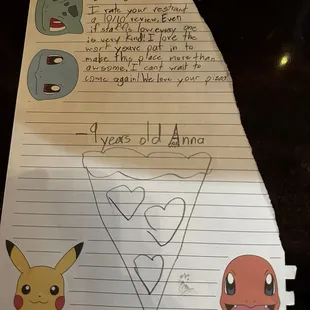 I rate your restrant
a 10/10 review. Even
if staf is low every one
is very kind! I love the
work youve pat in to
make this place more than
awsome! I can't wait to
come again! We love your pizza!
-9 years old Anna